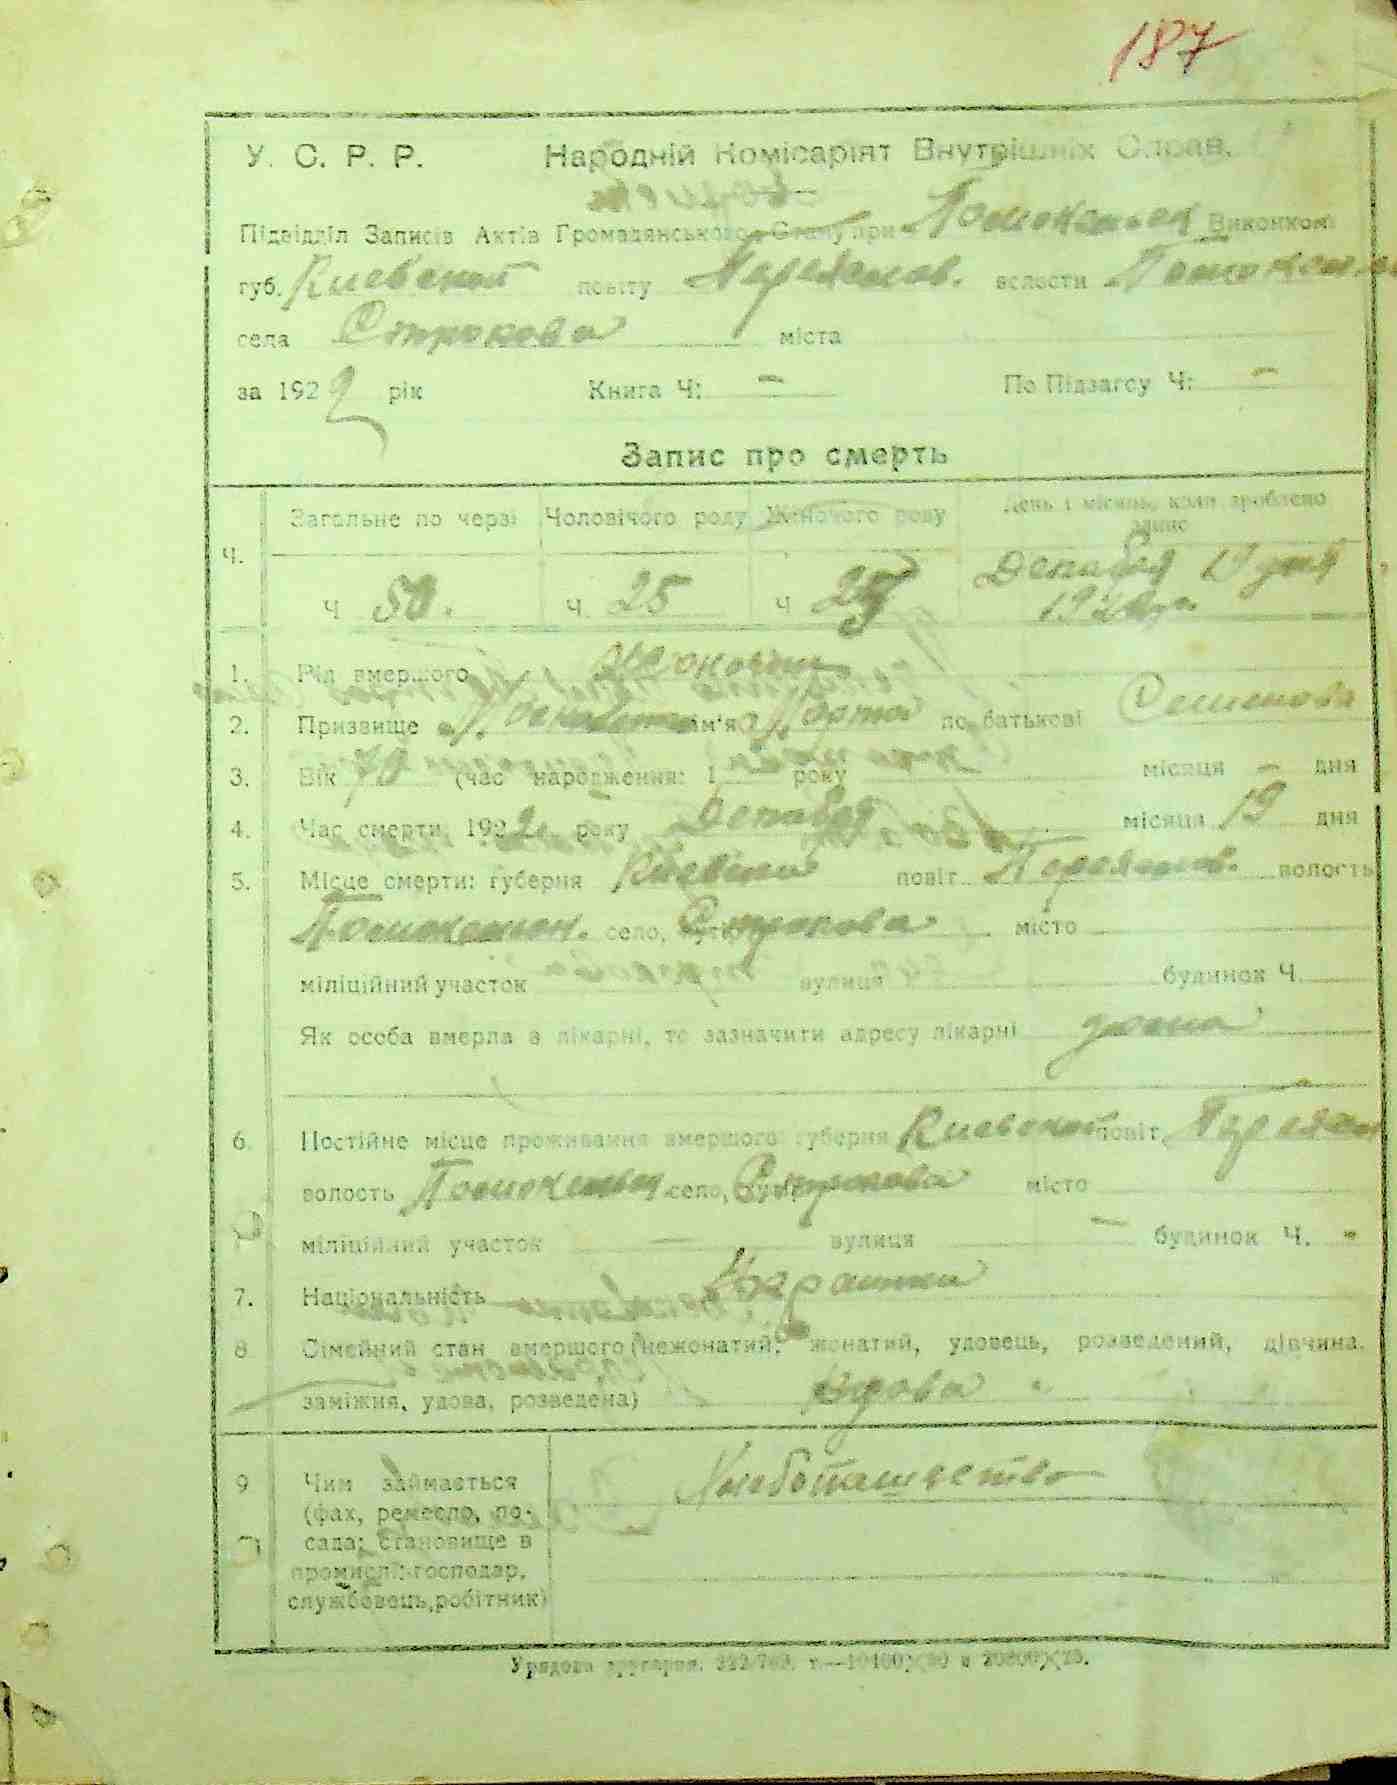 187
У. С. Р. Р. Народній Комісаріят Внутрішніх Справ.
Підвідділ Записів Актів Громадянського Стану при Виконком
губ. Киевской повіту Переяслов. волости
села Строкова міста
за 1922 рік Книга Ч: – По Підзагсу Ч: –
Запис про смерть
Ч. Загальне по черзі Чоловічого роду Жіночого роду День і місяць, коли зроблено запис
Ч 50. Ч. 25 Ч Декабря 19 дня
1. Рід вмершого
2. Призвище ім'я по батькові Семенова
3. Вік 70 (час народження: 1 року місяця – дня
4. Час смерти 1922 року Декабря місяця 19 дня
5. Місце смерти: губерня повіт Переяслов. волость
село, Строкова місто
міліційний участок вулиця будинок Ч.
Як особа вмерла в лікарні, то зазначити адресу лікарні дома
6. Постійне місце проживання вмершого губерня Киевской повіт
волость село, Строкова місто
міліційний участок – вулиця – будинок Ч. -
7. Національність
8 Сімейний стан вмершого (нежонатий, жонатий, удовець, розведений, дівчина,
заміжня, удова, розведена) Вдова
9 Чим займається Хлебопашество
(фах, ремесло, по-
сада; становище в
промислі: господар,
службовець, робітник)
Урядова друкарня.